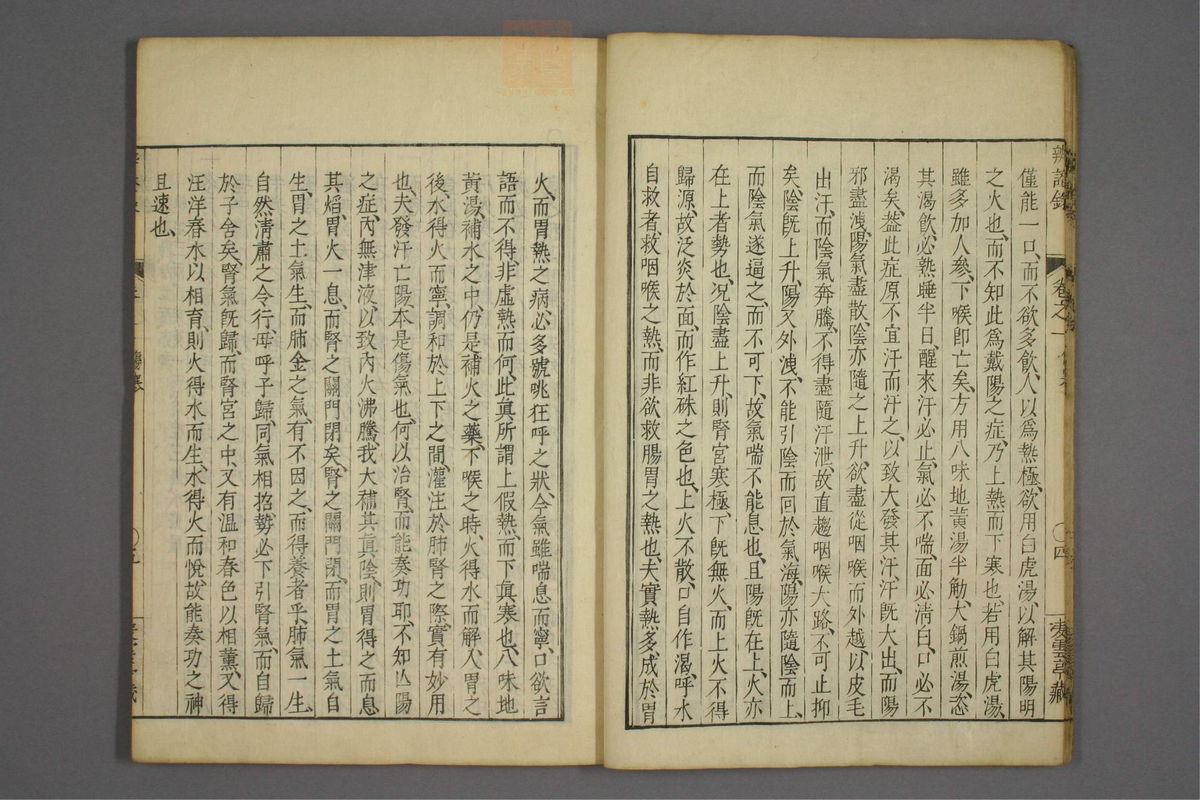 僅能一口、而不欲多飲、人以爲熱極、欲用白虎湯、以解其陽明
之火也、而不知此爲戴陽之症、乃上熱而下寒也、若用白虎湯、
雖多加人參、下喉即亡矣、方用八味地黃湯半觔、大鍋煎湯、恣
其渴飲、必熟睡半日、醒來汗必止、氣必不喘、面必淸白、口必不
渴矣、葢此症原不宜汗而汗之、以致大發其汗、汗旣大出、而陽
邪盡洩、陽氣盡散、陰亦隨之上升、欲盡從咽喉而外越、以皮毛
出汗、而陰氣奔騰、不得盡隨汗泄、故直趨咽喉大路、不可止抑
矣、陰旣上升、陽又外洩、不能引陰而回於氣海、陽亦隨陰而上、
而陰氣遂逼之、而不可下、故氣喘不能息也、且陽旣在上、火亦
在上者勢也、况陰盡上升、則腎宮寒極、下旣無火、而上火不得
歸源、故泛炎於面、而作紅硃之色也、上火不散、口自作渴、呼水
自救者、救咽喉之熱、而非欲救腸胃之熱也、夫實熱多成於胃
火、而胃熱之病、必多號咷狂呼之狀、今氣雖喘息而寧、口欲言
語而不得、非虛熱而何、此眞所謂上假熱、而下眞寒也、八味地
黃湯、補水之中、仍是補火之藥、下喉之時、火得水而解、入胃之
後、水得火而寧、調和於上下之間、灌注於肺腎之際、實有妙用
也、夫發汗亡陽、本是傷氣也、何以治腎、而能奏功耶、不知亾陽
之症、內無津液、以致內火沸騰、我大補其眞陰、則胃得之而息
其焰、胃火一息、而腎之關門閉矣、腎之關門閉、而胃之土氣自
生、胃之土氣生、而肺金之氣、有不因之而得養者乎、肺氣一生、
自然淸肅之令行、母呼子歸、同氣相招、勢必下引腎氣、而自歸
於子舍矣、腎氣旣歸、而腎宮之中、又有溫和春色以相薰、又得
汪洋春水以相育、則火得水而生、水得火而悅、故能奏功之神
且速也、
辨證錄
卷之一
傷寒
〇四